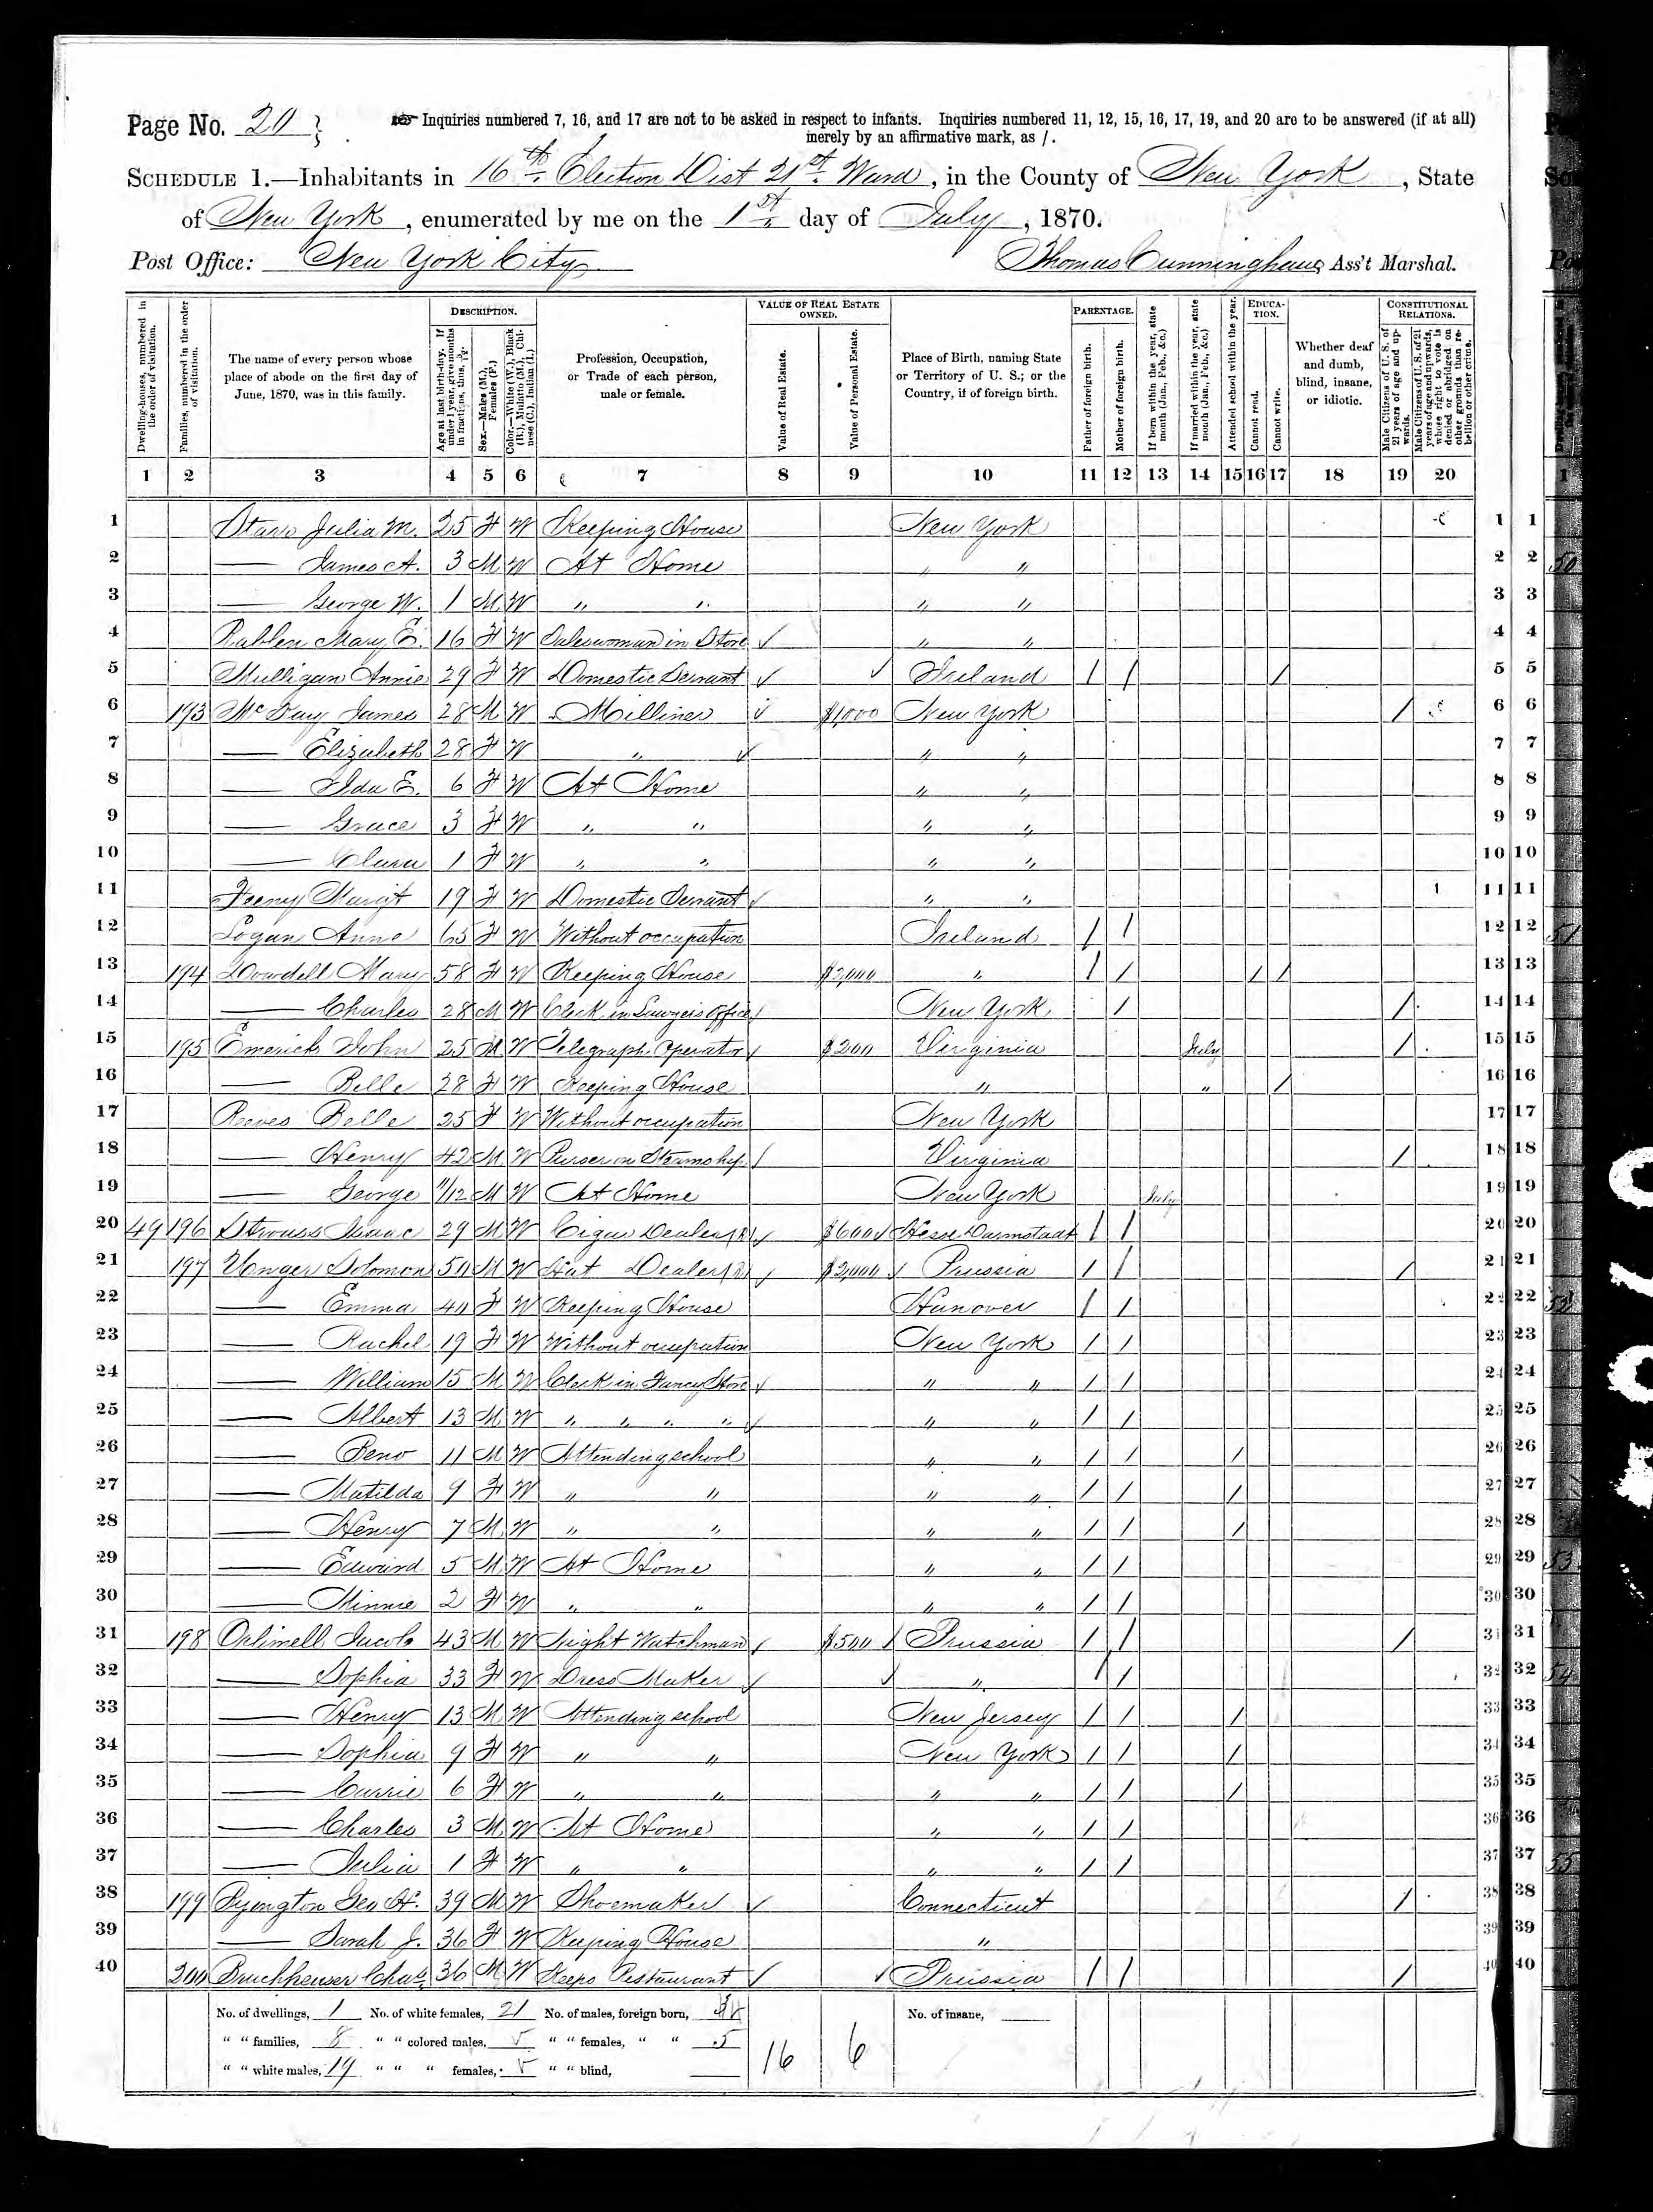 Page No. 20
Inquiries numbered 7, 16, and 17 are not to be asked in respect to infants. Inquiries numbered 11, 12, 15, 16, 17, 19, and 20 are to be answered (if at all)
merely by an affirmative mark, as /.
SCHEDULE 1.—Inhabitants in 16th Election Dist 21st Ward, in the County of New York, State
of New York, enumerated by me on the 1st day of July, 1870.
Post Office: New York City
Thomas Cunningham, Ass't Marshal.
Dwelling-houses, numbered in the order of visitation.
Families, numbered in the order of visitation.
The name of every person whose place of abode on the first day of June, 1870, was in this family.
DESCRIPTION.
Age at last birth-day. If under 1 year, give months in fractions, thus, 3/12.
Sex.—Males (M.), Females (F.)
Color.—White (W.), Black (B.), Mulatto (M.), Chinese (C.), Indian (I.)
Profession, Occupation, or Trade of each person, male or female.
VALUE OF REAL ESTATE OWNED.
Value of Real Estate.
Value of Personal Estate.
Place of Birth, naming State or Territory of U. S.; or the Country, if of foreign birth.
PARENTAGE.
Father of foreign birth.
Mother of foreign birth.
If born within the year, state month (Jan., Feb., &c.)
If married within the year, state month (Jan., Feb., &c.)
Attended school within the year.
EDUCATION.
Cannot read.
Cannot write.
Whether deaf and dumb, blind, insane, or idiotic.
CONSTITUTIONAL RELATIONS.
Male Citizens of U. S. of 21 years of age and upwards.
Male Citizens of U. S. of 21 years of age and upwards, whose right to vote is denied or abridged on other grounds than rebellion or other crime.
1 2 3 4 5 6 7 8 9 10 11 12 13 14 15 16 17 18 19 20
1 Starr Julia M. 25 F W Keeping House New York 1 1
2 — James A. 3 M W At Home " " 2 2
3 — George W. 1 M W " " " " 3 3
4 Mary E. 16 F W Saleswoman in Store " " 4 4
5 Mulligan Annie 29 F W Domestic Servant Ireland / / / 5 5
6 193 McKay James 28 M W Milliner $1,000 New York / 6 6
7 — Elizabeth 28 F W " " " 7 7
8 — Ida E. 6 F W At Home " " 8 8
9 — Grace 3 F W " " " " 9 9
10 — Clara 1 F W " " " " 10 10
11 Feeny Margt 19 F W Domestic Servant " " 11 11
12 Logan Anne 65 F W Without occupation Ireland / / 12 12
13 194 Dowdell Mary 58 F W Keeping House $3,000 " / / / / 13 13
14 — Charles 28 M W Clerk in Lawyers Office New York / / 14 14
15 195 Emerich John 25 M W Telegraph Operator $200 Virginia July / 15 15
16 — Belle 28 F W Keeping House " " / 16 16
17 Reeves Belle 25 F W Without occupation New York 17 17
18 — Henry 42 M W Purser on Steamship Virginia / 18 18
19 — George 11/12 M W At Home New York July 19 19
20 49 196 Strouss Isaac 29 M W Cigar Dealer (R) $600 Hesse Darmstadt / / 20 20
21 197 Unger Solomon 50 M W Hat Dealer (R) $2,000 Prussia / / / 21 21
22 — Emma 40 F W Keeping House Hanover / / 22 22
23 — Rachel 19 F W Without occupation New York / / 23 23
24 — William 15 M W Clerk in Fancy Store " " / / 24 24
25 — Albert 13 M W " " " " " " / / 25 25
26 — Beno 11 M W Attending school " " / / / 26 26
27 — Matilda 9 F W " " " " / / / 27 27
28 — Henry 7 M W " " " " / / / 28 28
29 — Edward 5 M W At Home " " / / 29 29
30 — Minnie 2 F W " " " " / / 30 30
31 198 Jacob 43 M W Night Watchman $500 Prussia / / / 31 31
32 — Sophia 33 F W Dress Maker " / / 32 32
33 — Henry 13 M W Attending school New Jersey / / / 33 33
34 — Sophia 9 F W " " New York / / / 34 34
35 — Carrie 6 F W " " " " / / / 35 35
36 — Charles 3 M W At Home " " / / 36 36
37 — Julia 1 F W " " " " / / 37 37
38 199 Pyington Geo H. 39 M W Shoemaker Connecticut / 38 38
39 — Sarah J. 36 F W Keeping House " 39 39
40 200 Bruchheuser Chas. 36 M W Keeps Restaurant Prussia / / / 40 40
No. of dwellings, 1 No. of white females, 21 No. of males, foreign born, No. of insane,
" " families, 8 " " colored males, " " females, " " 5 16 6
" " white males, 19 " " " females, " " blind,